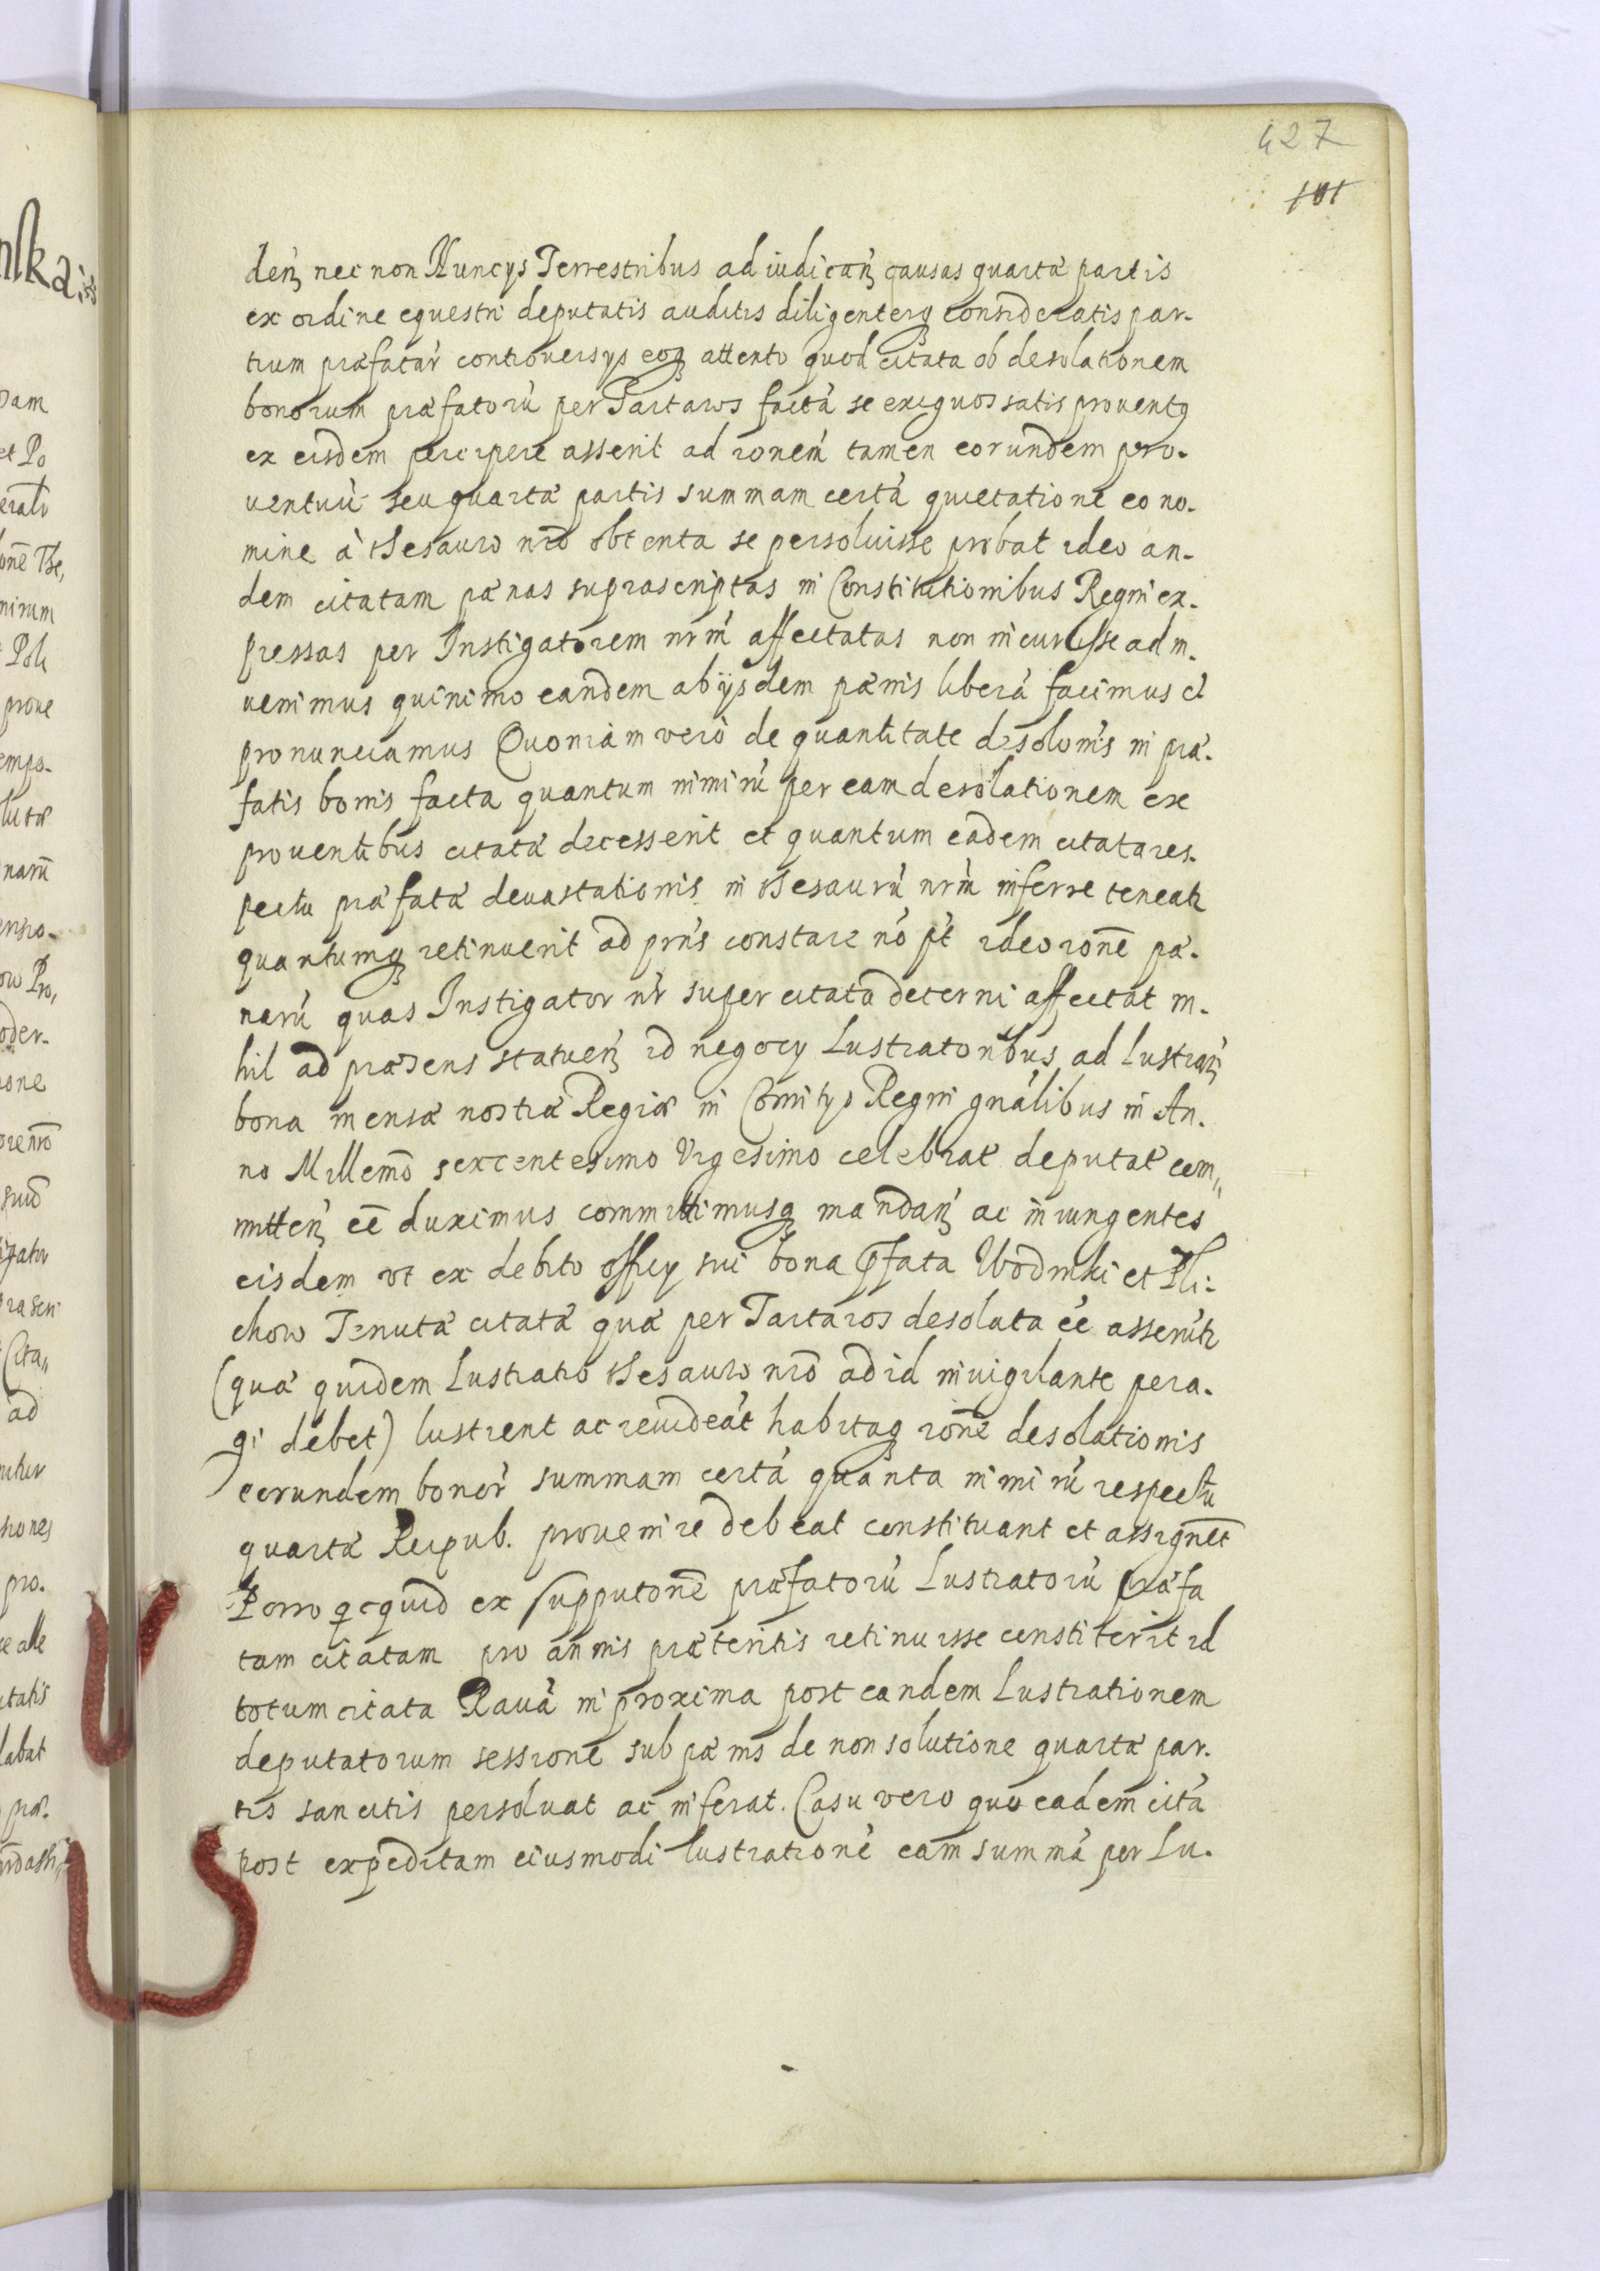 427
101
nskaiss
den̄ꝫ nec non Nuncys Terrestribus ad iudican̄ꝫ causas quartæ partis
ex ordine equestri deputatis auditis diligenterq consideratis par-
tium præfatar̄ controuersys eoq attento quod citata ob desolationem
bonorum præfatorū per Tartaros factā se exiguos satis prouentꝯ
ex eisdem percipere asserit ad ronem̄ tamen eorundem pro-
uentuū seu quartæ partis summam certā quietatione eo no-
mine à thesauro nr̄o obtenta se persoluisse probat ideo an-
dem citatam pænas suprascriptas in Constitutionibus Regni ex-
pressas per Instigatorem nrm̄ affectatas non incurisse ad in-
uenimus quinimo eandem ab ijsdem pænis liberā facimus et
pronunciamus Quoniam verò de quantitate desolonis in præ-
fatis bonis facta quantum nimirū per eam desolationem ex
prouentibus citatæ decesserit et quantum eadem citata res-
pectu præfatæ deuastationis in thesaurū nrm̄ inferre teneatr
quantumq retinuerit ad prn̄s constare nō pt̄ ideo ronē pæ-
narū quas Instigator nr̄ super citata decerni affectat ni-
hil ad præsens statuen̄ꝫ id negocy Lustratoribus ad lustran̄ꝫ
bona mensæ nostræ Regiæ in Comitys Regni gnālibus in An-
no Millemō sexcentesimo Vigesimo celebrat̄ deputat̄ com„
mitten̄ꝫ eē̄ duximus committimusq mandan̄ꝫ ac iniungentes
eisdem vt ex debito officy sui bona p̄fata Wodinki et Pli-
chow Tenutæ citatæ quæ per Tartaros desolata eē̄ asserītr
(quæ quidem Lustratio thesauro nr̄o ad id inuigilante pera-
gi debet) lustrent ac reuideāt habitaq ronē desolationis
eorundem bonor̄ summam certā quanta nimirū respectu
quartæ Reipub. prouenire debeat constituant et assignēt
Porro qcquid ex supputonē præfatorū Lustratorū præfa
tam citatam pro annis præteritis retinuisse constiterit id
totum citata Rauæ in proxima post eandem Lustrationem
deputatorum sessione sub pænis de non solutione quartæ par-
tis sancitis persoluat ac inferat. Casu vero quo eadem citā
post expeditam eiusmodi lustrationē eam summā per Lu-